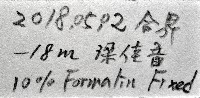 2018.05.02 合界
-18m 深佳音
10% Formalin Fixed